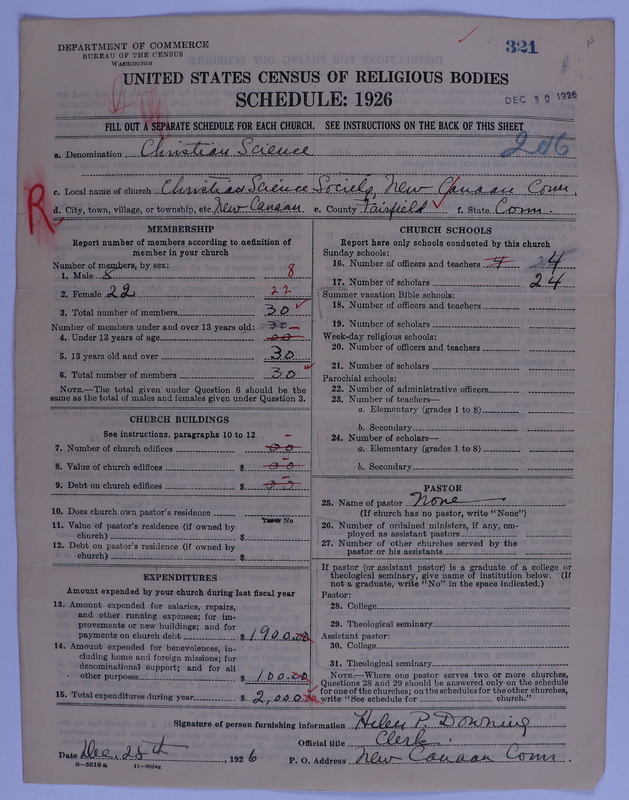 DEPARTMENT OF COMMERCE
BUREAU OF THE CENSUS
WASHINGTON
321
UNITED STATES CENSUS OF RELIGIOUS BODIES
SCHEDULE: 1926
DEC 30 1926
FILL OUT A SEPARATE SCHEDULE FOR EACH CHURCH. SEE INSTRUCTIONS ON THE BACK OF THIS SHEET
a. Denomination Christian Science
c. Local name of church Christian Science Society, New Canaan Conn.
R
d. City, town, village, or township, etc. New Canaan e. County Fairfield f. State Conn.
MEMBERSHIP
Report number of members according to definition of
member in your church
Number of members, by sex:
1. Male 8 8
2. Female 22 22
3. Total number of members 30
Number of members under and over 13 years old: 30
4. Under 13 years of age 00
5. 13 years old and over 30
6. Total number of members 30
NOTE.—The total given under Question 6 should be
same as the total of males and females given under Question 3.
CHURCH BUILDINGS
See instructions, paragraphs 10 to 12
7. Number of church edifices 00
8. Value of church edifices $ 00
9. Debt on church edifices $ 00
10. Does church own pastor's residence
Yes or No
11. Value of pastor's residence (if owned by
church) $
12. Debt on pastor's residence (if owned by
church) $
EXPENDITURES
Amount expended by your church during last fiscal year
13. Amount expended for salaries, repairs,
and other running expenses; for im-
provements or new buildings; and for
payments on church debt $ 1900.00
14. Amount expended for benevolences, in-
cluding home and foreign missions; for
denominational support; and for all
other purposes $ 100.00
15. Total expenditures during year $ 2,000.00
CHURCH SCHOOLS
Report here only schools conducted by this church
Sunday schools:
16. Number of officers and teachers 4
17. Number of scholars 24
Summer vacation Bible schools:
18. Number of officers and teachers
19. Number of scholars
Week-day religious schools:
20. Number of officers and teachers
21. Number of scholars
Parochial schools:
22. Number of administrative officers
23. Number of teachers—
a. Elementary (grades 1 to 8)
b. Secondary
24. Number of scholars—
a. Elementary (grades 1 to 8)
b. Secondary
PASTOR
25. Name of pastor None
(If church has no pastor, write "None")
26. Number of ordained ministers, if any, em-
ployed as assistant pastors
27. Number of other churches served by the
pastor or his assistants
If pastor (or assistant pastor) is a graduate of a college or
theological seminary, give name of institution below. (If
not a graduate, write "No" in the space indicated.)
Pastor:
28. College
29. Theological seminary
Assistant pastor:
30. College
31. Theological seminary
NOTE.—Where one pastor serves two or more churches,
Questions 28 and 29 should be answered only on the schedule
for one of the churches; on the schedules for the other churches,
write "See schedule for church."
Signature of person furnishing information Helen P. Downing
Official title Clerk
Date Dec. 28th, 1926 P. O. Address New Canaan Conn.
8—5518a 11—9024a